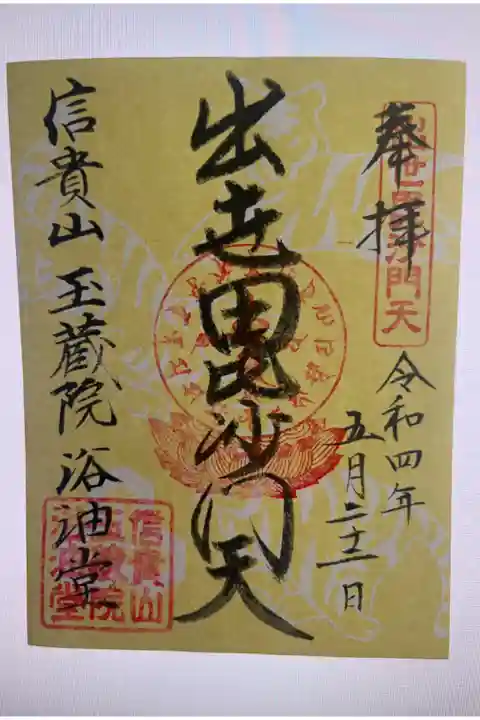 奉拝
出世毘沙門天
令和四年
五月二十二日
出世毘沙門天
信貴山 玉蔵院 浴油堂
信貴山
玉蔵院
浴油堂